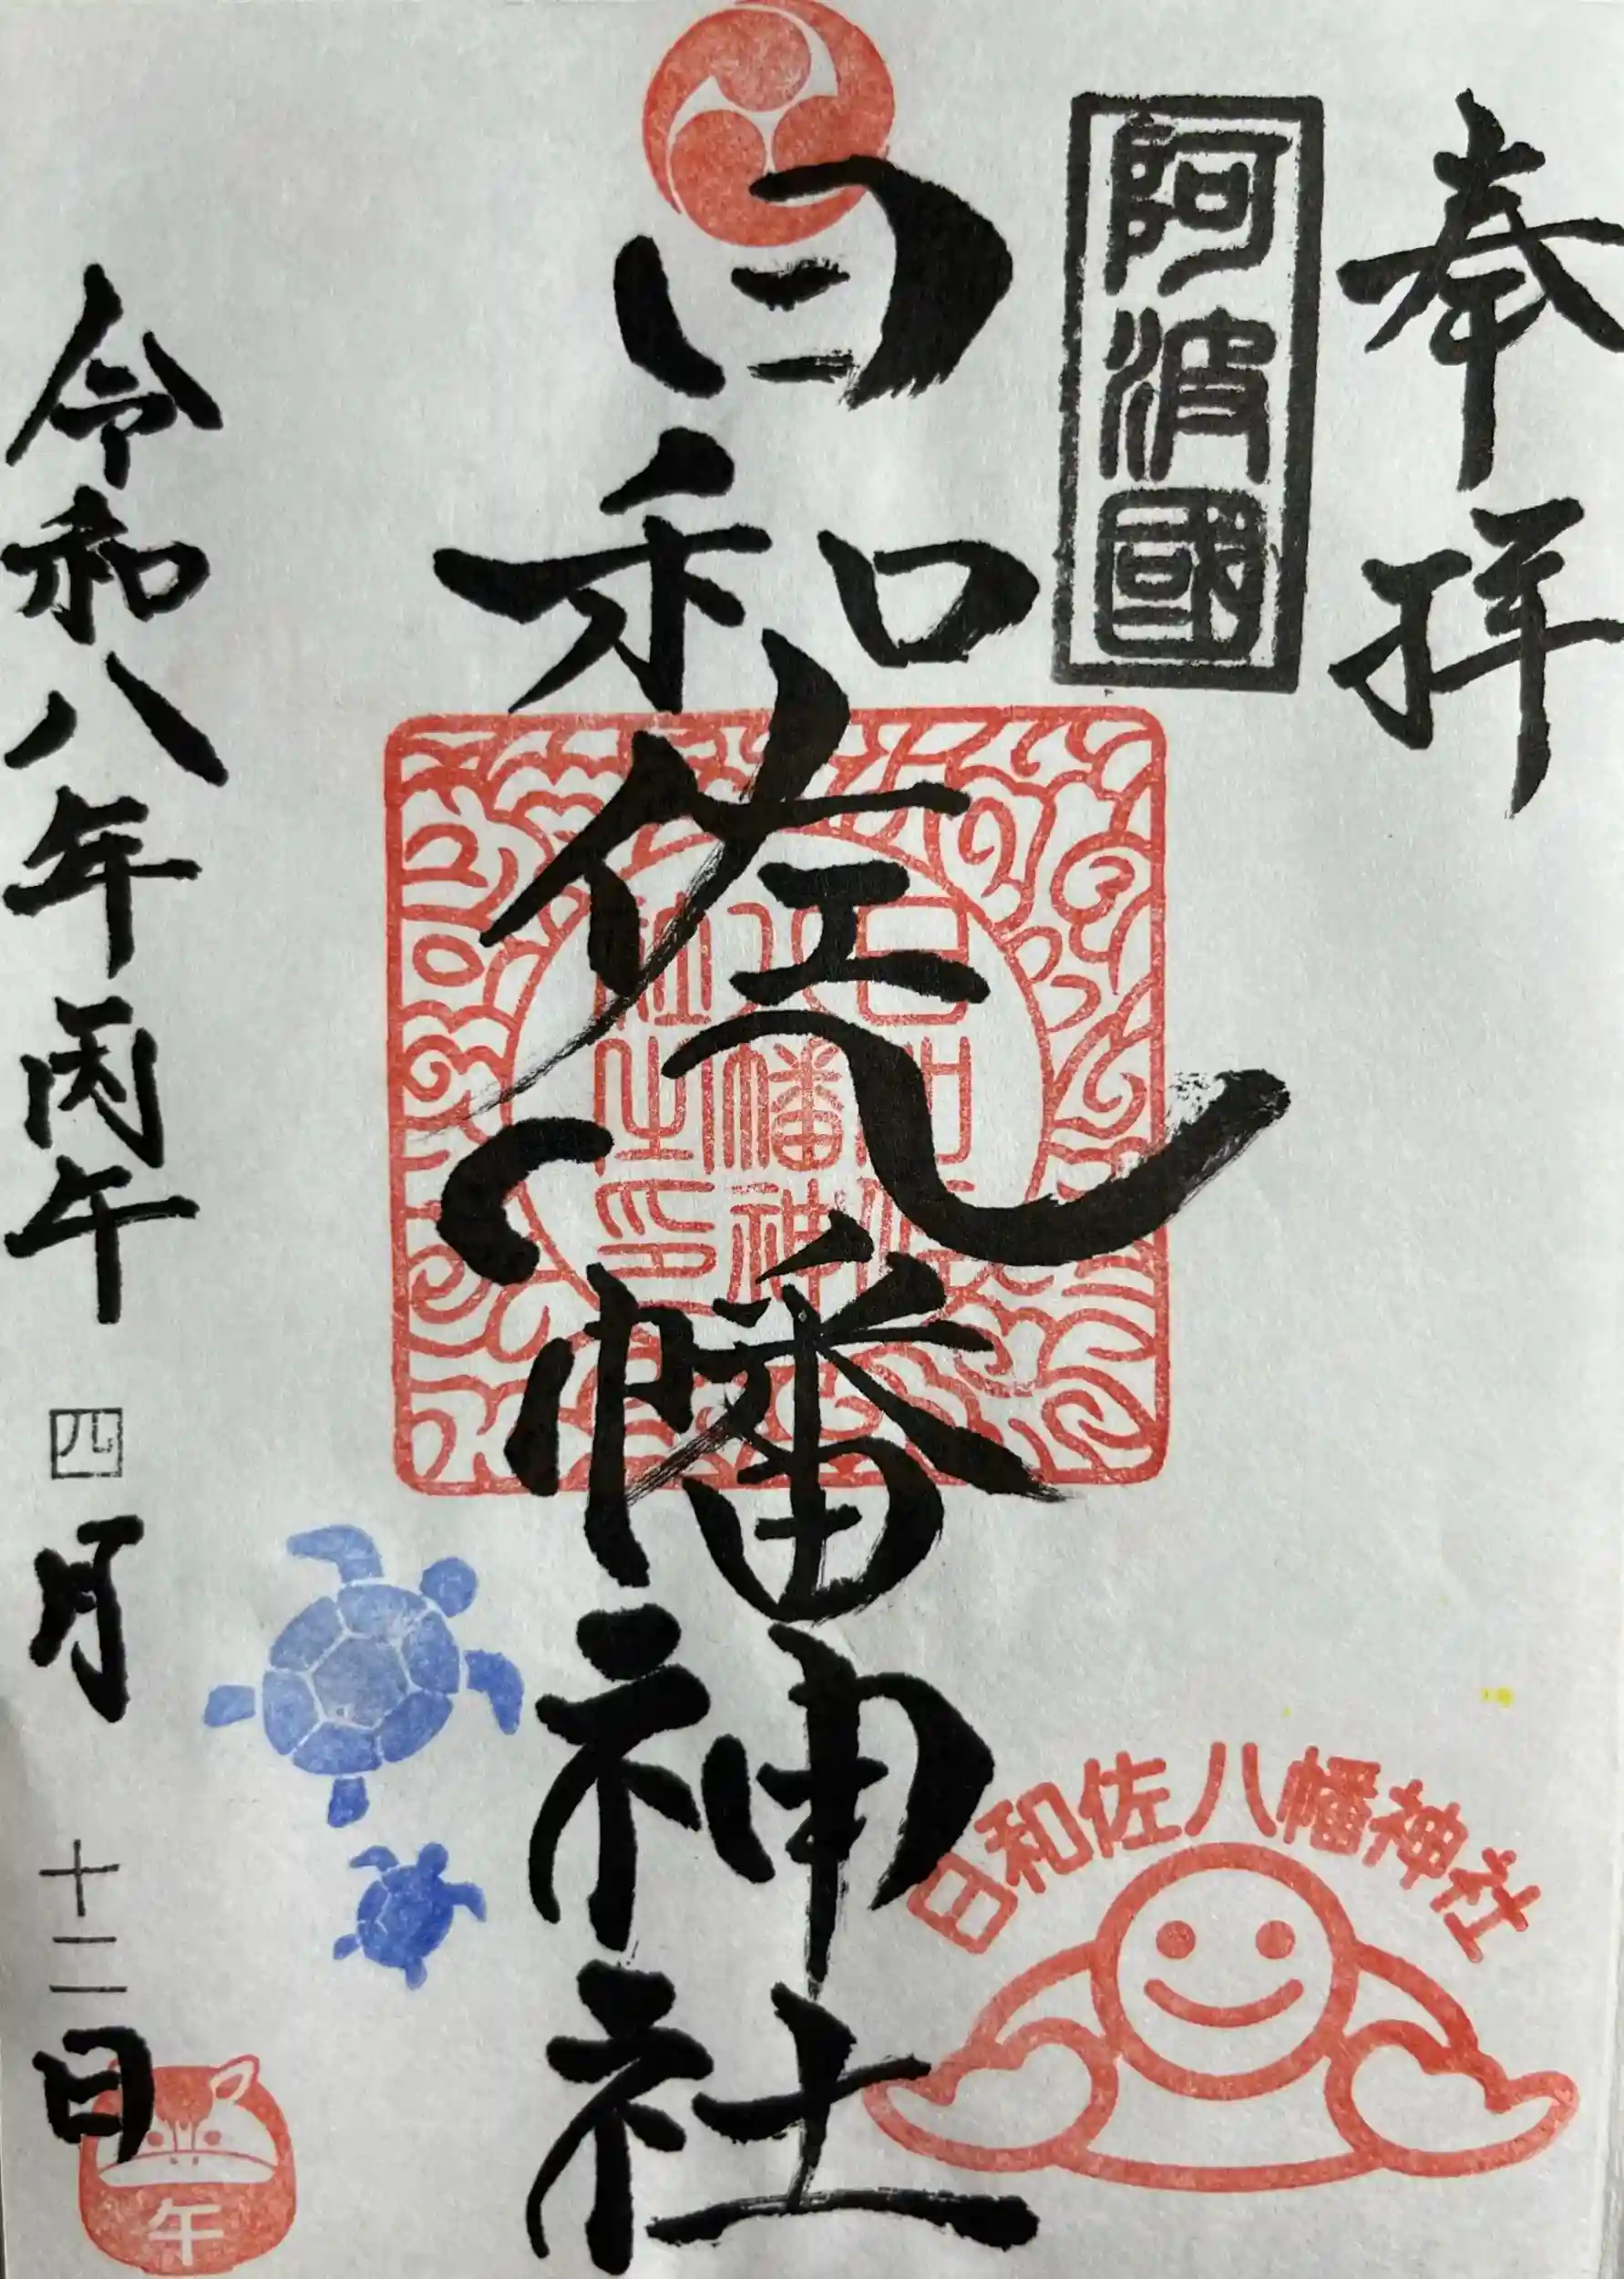 奉拝
阿波國
日和佐八幡神社
日和佐八幡神社之印
日和佐八幡神社
令和八年丙午四月十二日
午